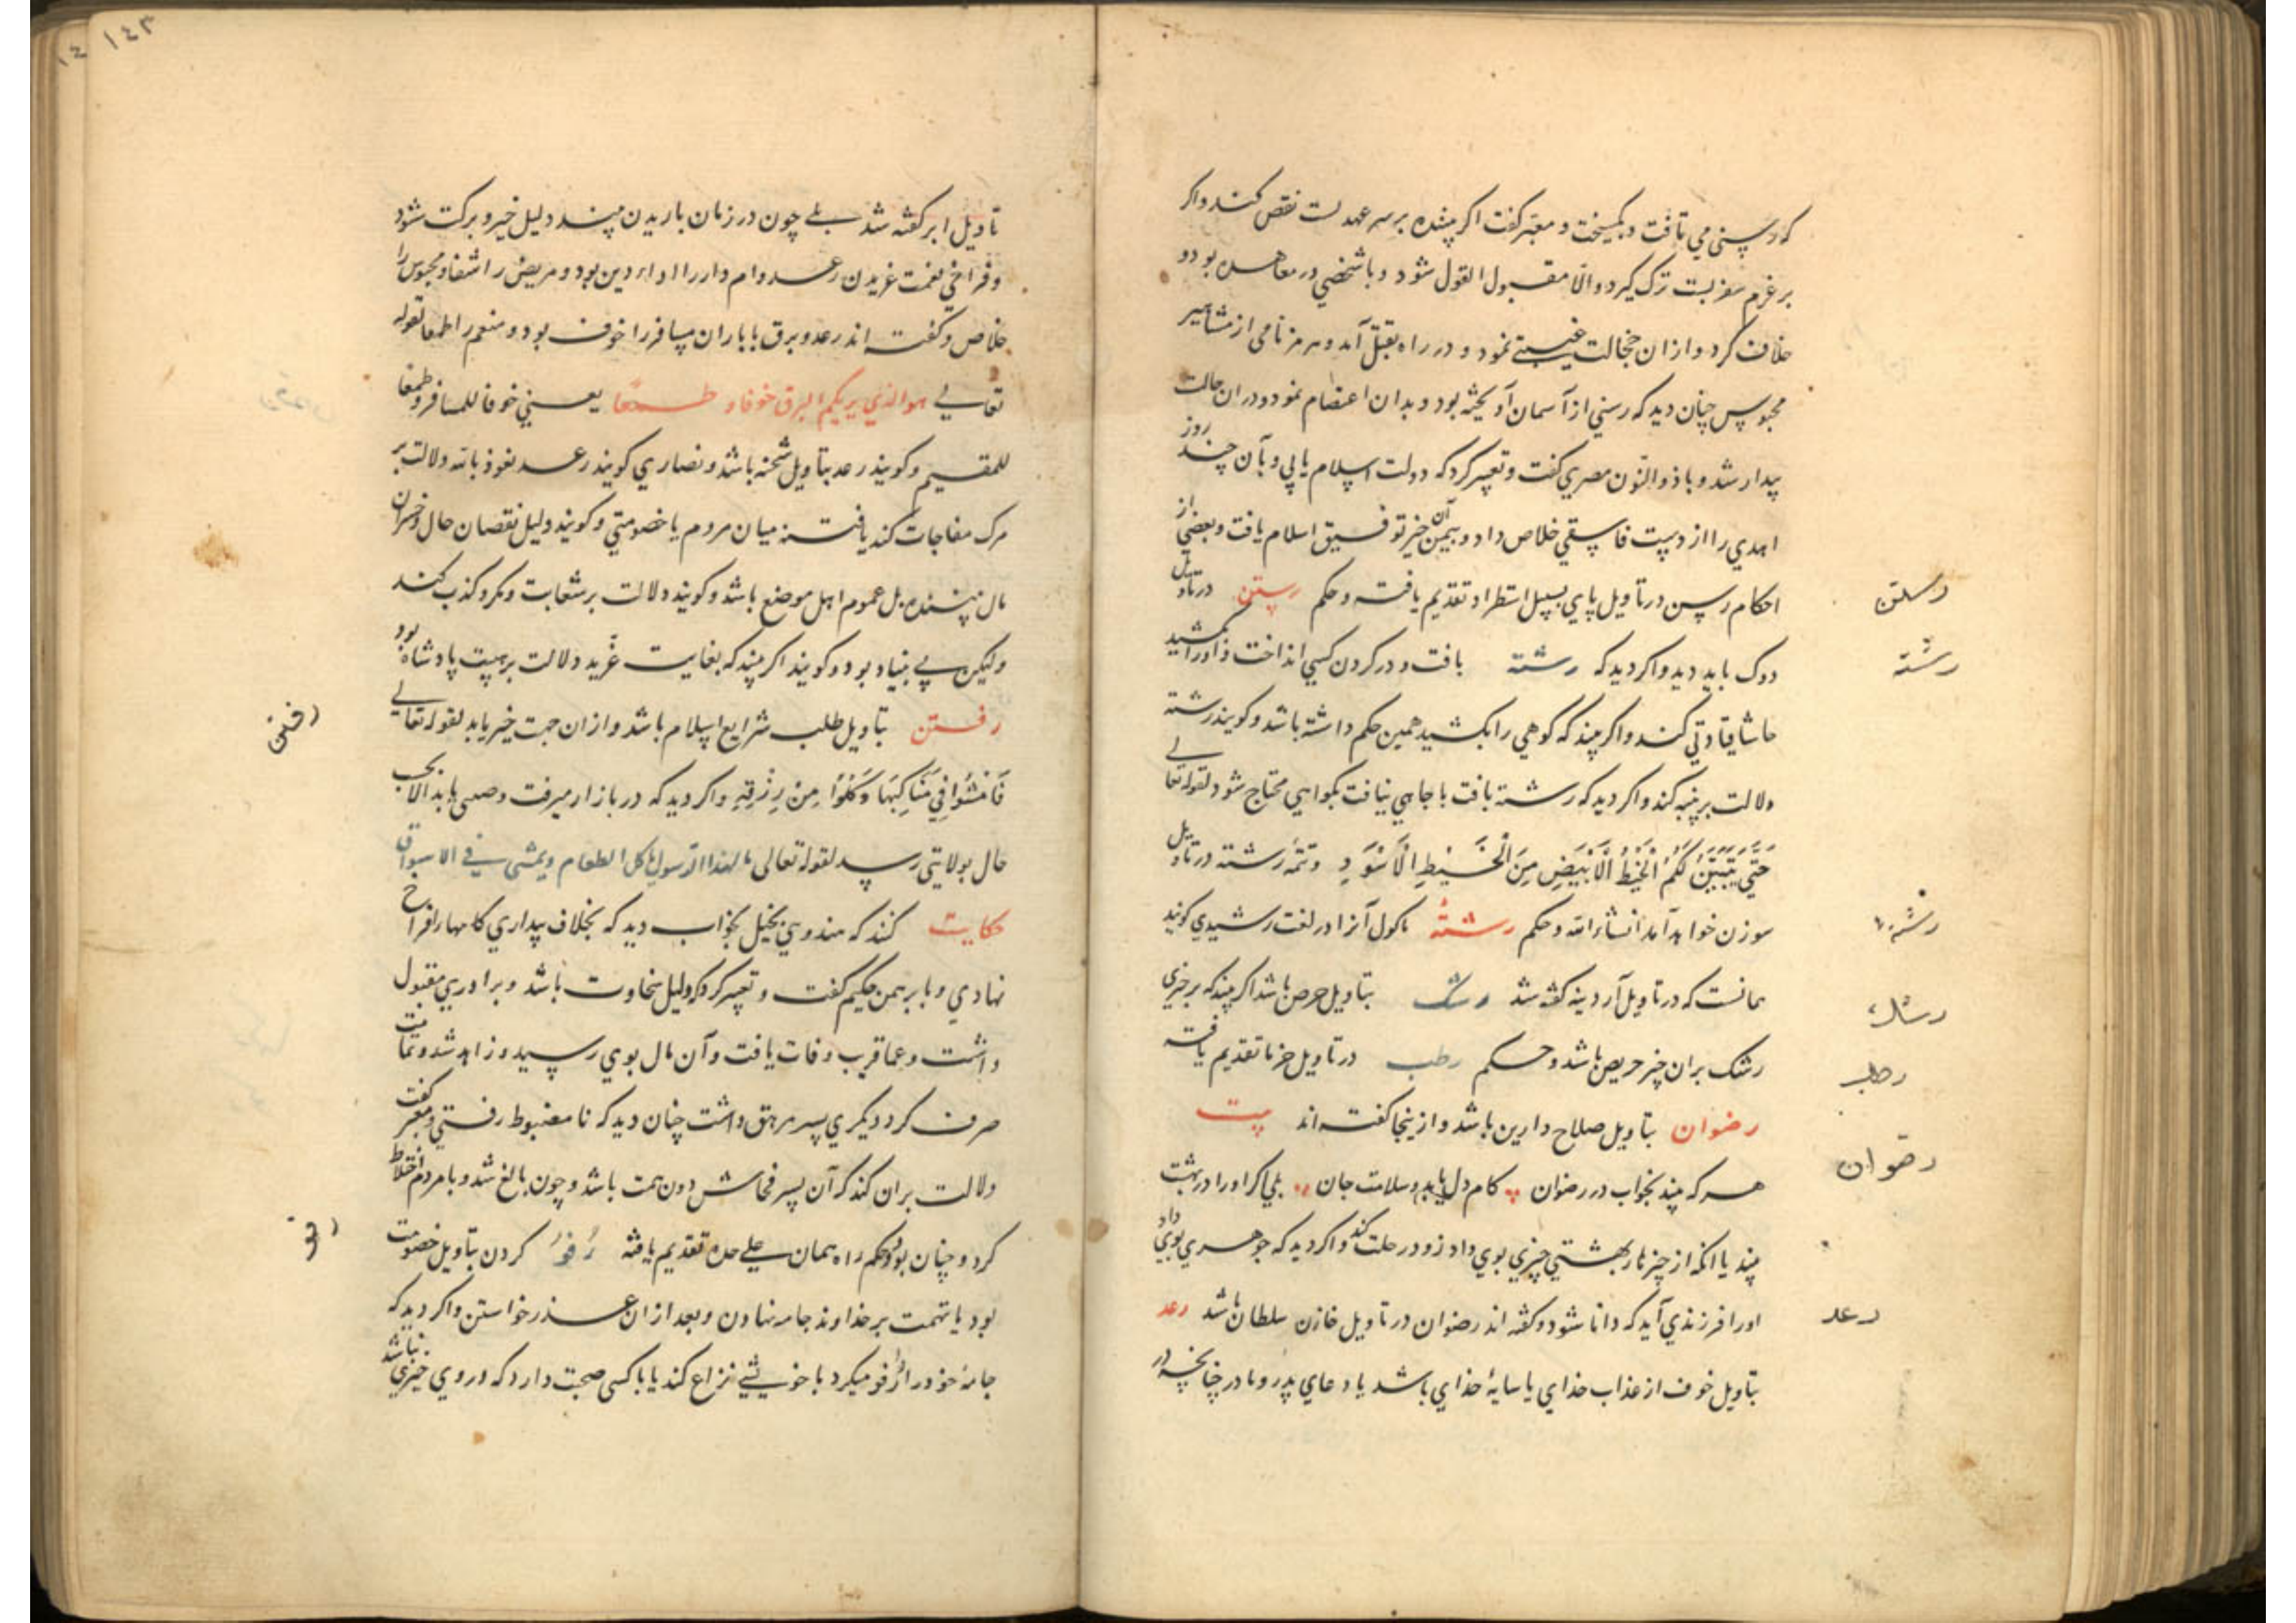 که رسنی می تافت و بکسیخت و معبر کفت اکر بیننده بر سر عهد است نقض کند و اکر
بر عزم سفر است ترک کیرد والا مقبول القول شود و با شخصی در معاهده بود و
خلاف کرد و از ان خجالت غیبتی نمود و در راه بقتل آمد و هرمز نامی از مشاهیر
محبوس چنان دید که رسنی از آسمان آویخته بود و بدان اعتصام نمود و دران حالت
بیدار شد و با ذوالنون مصری کفت و تعبیر کرد که دولت اسلام یابی و بآن چند روز
احدی را از دست فاسقی خلاص داد و بیمن آن خیر توفیق اسلام یافت و بعضی از
احکام رسن در تاویل پای بسبیل استطراد تقدیم یافته و حکم رستن در تاویل
دوک باید دید و اکر دید که رشته بافت و در کردن کسی انداخت و او را کشید
حاشا قیادتی کند و اکر بیند که کوهی را بکشید همین حکم داشته باشد و کویند رشته
دلالت بر پنبه کند و اکر دید که رشته بافت با جاهی نیافت بکواهی محتاج شود لقوله تعالی
حَتَّى يَتَبَيَّنَ لَكُمُ الْخَيْطُ الْأَبْيَضُ مِنَ الْخَيْطِ الْأَسْوَدِ و تتمه رشته در تاویل
سوزن خواهد آمد انشاء الله و حکم رشتهٔ ماکول آنرا در لغت رشیدی کویند
همانست که در تاویل آردینه کفته شد رشک بتاویل حرص باشد اکر بیند که بر چیزی
رشک بران چیز حریص باشد و حکم رطب در تاویل خرما تقدیم یافته
رضوان بتاویل صلاح دارین باشد و ازینجا کفته اند بیت
هر که بیند بخواب در رضوان کام دل یابد و سلامت جان بلی اکر او را در بهشت
بیند یا انکه از چیزهای بهشتی چیزی بوی داد زود رحلت کند و اکر دید که جوهری بوی داد
او را فرزندی آید که دانا شود و کفته اند رضوان در تاویل خازن سلطان باشد رعد
بتاویل خوف از عذاب خدای یا سایهٔ خدای باشد یا دعای پدر و مادر چنانچه در
رستن
رشته
رشته
رشک
رطب
رضوان
رعد
١٤٣
تاویل ابر کفته شد بلی چون در زمان باریدن بیند دلیل خیر و برکت شود
و فراخی نعمت غریدن رعد وام دار را اداء دین بود و مریض را شفا و محبوس را
خلاص و کفته اند رعد و برق با باران مسافر را خوف بود و منعم را طمعا لقوله
تعالی هو الذی یریکم البرق خوفا و طمعا یعنی خوفا للمسافر و طمعا
للمقیم و کویند رعد بتاویل شحنه باشد و نصاری کویند رعد نعوذ بالله دلالت بر
مرک مفاجات کند یا فتنه میان مردم یا خصومتی و کویند دلیل نقصان حال و خسران
مال بیننده بل عموم اهل موضع باشد و کویند دلالت بر شعابت و مکر و کذب کند
ولیکن بی بنیاد بود و کویند اکر بیند که بغایت غرید دلالت بر هیبت پادشاه بود
رفتن بتاویل طلب شرایع اسلام باشد و از ان جهت خیر یابد لقوله تعالی
فَامْشُوا فِي مَنَاكِبِهَا وَكُلُوا مِنْ رِزْقِهِ و اکر دید که در بازار میرفت
حال بولایتی رسد لقوله تعالی ما لهذا الرسول یاکل الطعام ویمشی فی الاسواق
حکایت کنند که هندویی بخیل بخواب دید که بخلاف بیداری کامها را فراخ
نهادی و با برهمن حکیم کفت و تعبیر کرد که دلیل سخاوت باشد و برادری مقبول
داشت و عما قریب وفات یافت و آن مال بوی رسید و زاهد شد و تمامت
صرف کرد دیکری پسر مرهق داشت چنان دید که نا مضبوط رفتی و معبر کفت
دلالت بران کند که آن پسر فحاش دون همت باشد و چون بالغ شد و با مردم اختلاط
کرد و چنان بود و حکم راه همان علی حده تقدیم یافته رفو کردن بتاویل خصومت
بود یا تهمت بر خداوند جامه نهادن و بعد از ان عذر خواستن و اکر دید که
جامهٔ خود را رفو میکرد با خویشی نزاع کند یا با کسی صحبت دارد که در وی خیری نباشد
رفتن
رفو